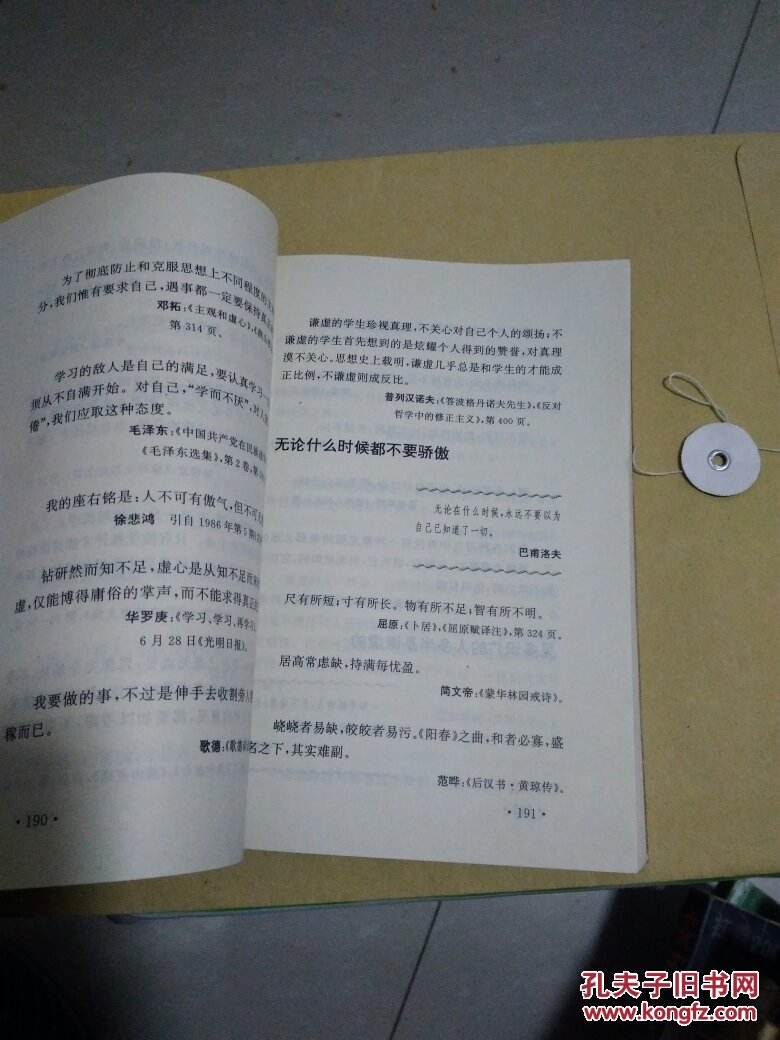 为了彻底防止和克服思想上不同程度的
分,我们惟有要求自己,遇事都一定要保持真
邓拓:《主观和虚心》,
第314页。
学习的敌人是自己的满足,要认真学习一
须从不自满开始。对自己,“学而不厌”,对人
倦”,我们应取这种态度。
毛泽东:《中国共产党在民族
《毛泽东选集》,第2卷,第
我的座右铭是:人不可有傲气,但不可
徐悲鸿 引自1986年第5期
钻研然而知不足,虚心是从知不足而
虚,仅能博得庸俗的掌声,而不能求得真正
华罗庚:《学习、学习、再学习》
6月28日《光明日报》。
我要做的事,不过是伸手去收割旁人
稼而已。
歌德:《歌德
·190·
谦虚的学生珍视真理,不关心对自己个人的颂扬;不
谦虚的学生首先想到的是炫耀个人得到的赞誉,对真理
漠不关心。思想史上载明,谦虚几乎总是和学生的才能成
正比例,不谦虚则成反比。
普列汉诺夫:《答波格丹诺夫先生》,《反对
哲学中的修正主义》,第400页。
无论什么时候都不要骄傲
无论在什么时候,永远不要以为
自己已知道了一切。
巴甫洛夫
尺有所短;寸有所长。物有所不足;智有所不明。
屈原:《卜居》,《屈原赋译注》,第324页。
居高常虑缺,持满每忧盈。
简文帝:《蒙华林园戒诗》。
峣峣者易缺,皎皎者易污。《阳春》之曲,和者必寡,盛
名之下,其实难副。
范晔:《后汉书·黄琼传》。
·191·
孔夫子旧书网
www.kongfz.com